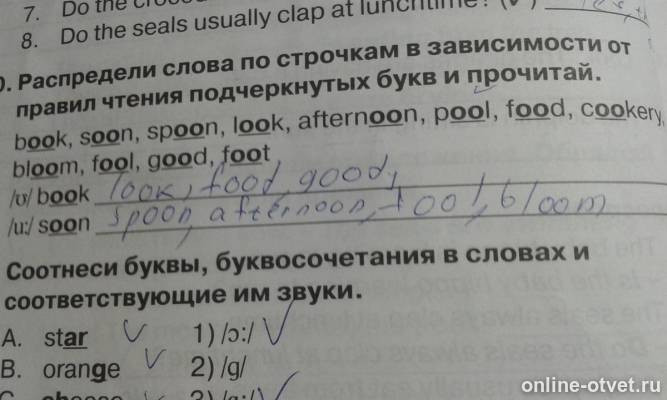 7. Do the
8. Do the seals usually clap at lunchtime?
0. Распредели слова по строчкам в зависимости от
правил чтения подчеркнутых букв и прочитай.
book, soon, spoon, look, afternoon, pool, food, cookery,
bloom, fool, good, foot
/ʊ/ book look, food, good,
/u:/ soon spoon, afternoon, fool, bloom
Соотнеси буквы, буквосочетания в словах и
соответствующие им звуки.
A. star V 1) /ɔ:/ V
B. orange V 2) /g/
online-otvet.ru